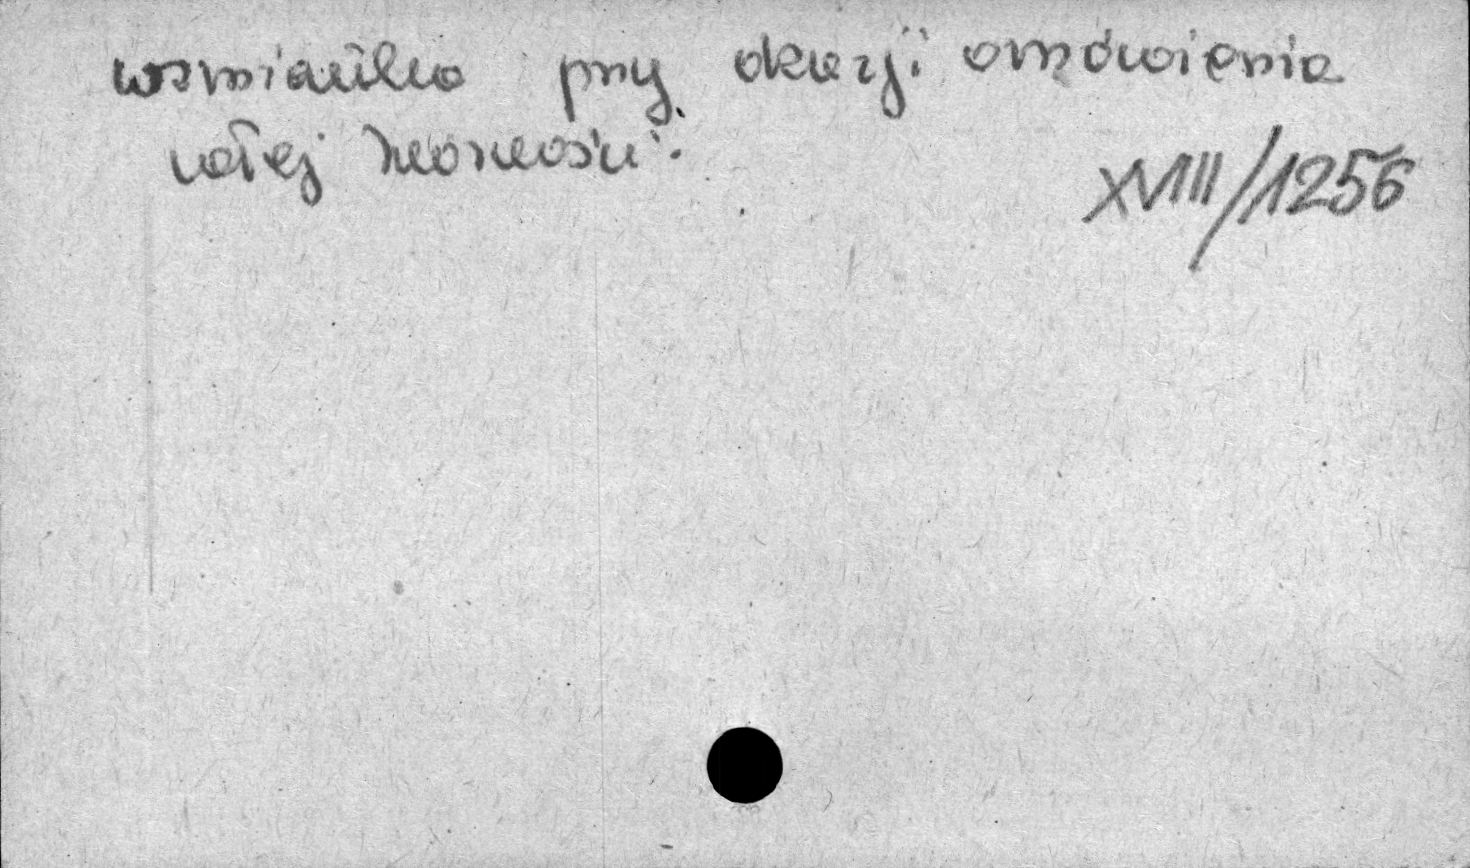 wzmianka przy okazji omówienia
całej twórczości.
XVIII/1256